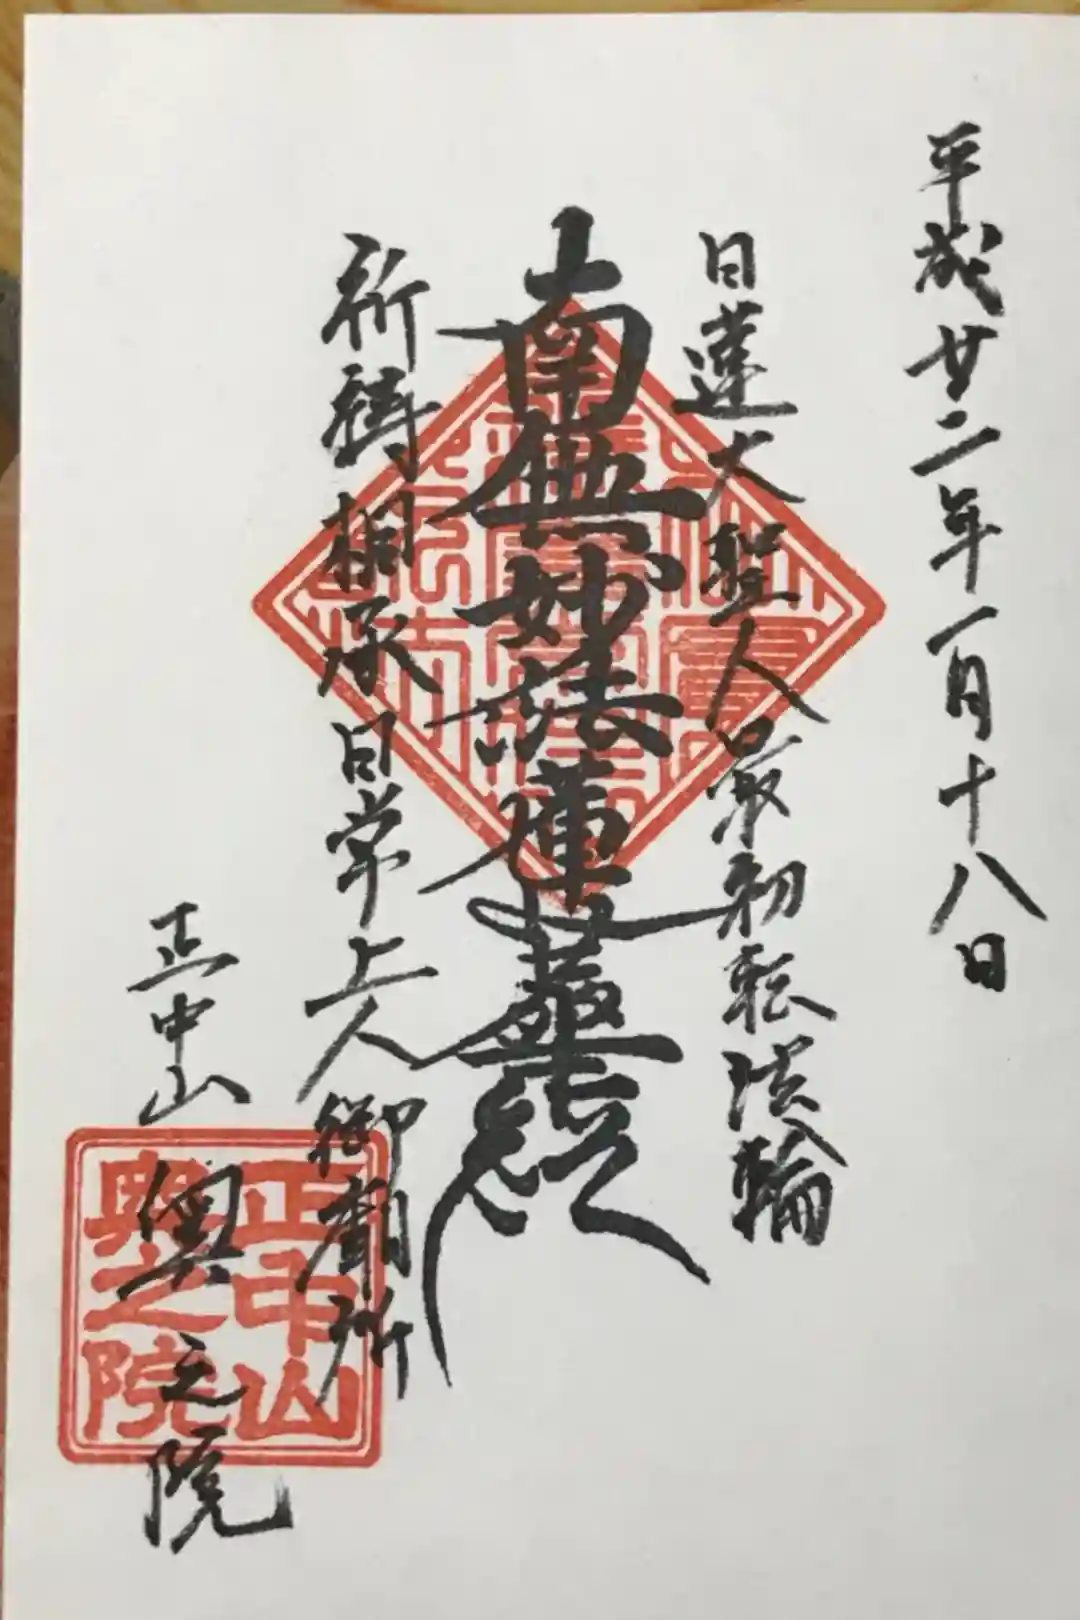 平成廿二年一月十八日
日蓮大聖人最初転法輪
南無妙法蓮華経
祈祷相承日常上人御廟所
正中山奥之院
正中山
奥之院